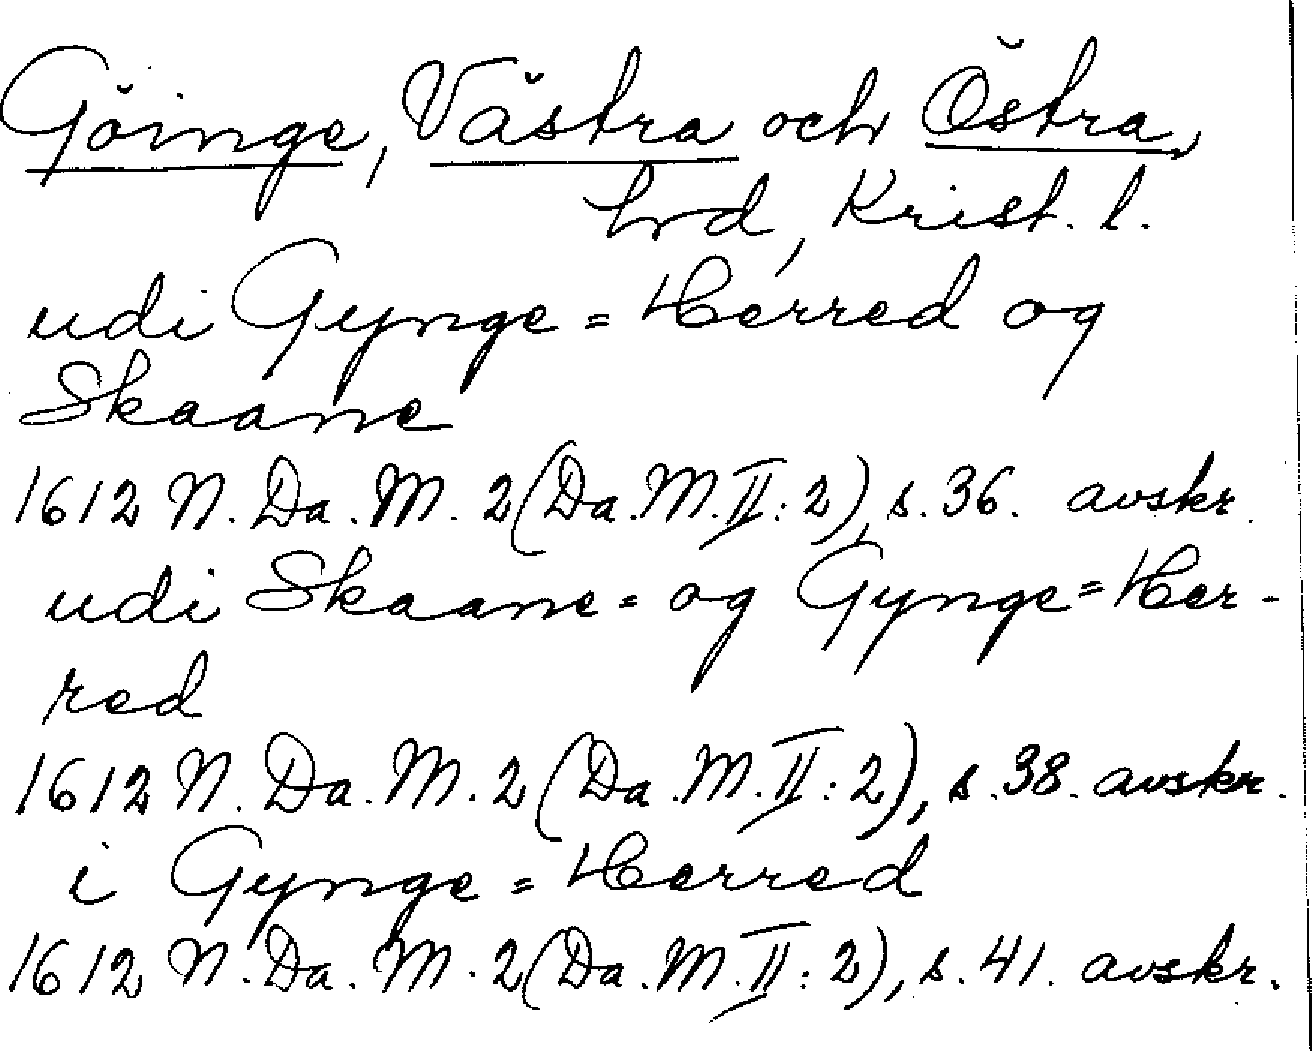 Göinge, Västra och Östra,
hrd, Krist. l.
udi Gynge=Herred og
Skaane
1612 N. Da. M. 2 (Da. M. II: 2), s. 36. avskr.
udi Skaane= og Gynge=Her-
red
1612 N. Da. M. 2 (Da. M. II: 2), s. 38. avskr.
i Gynge=Herred
1612 N. Da. M. 2 (Da. M. II: 2), s. 41. avskr.